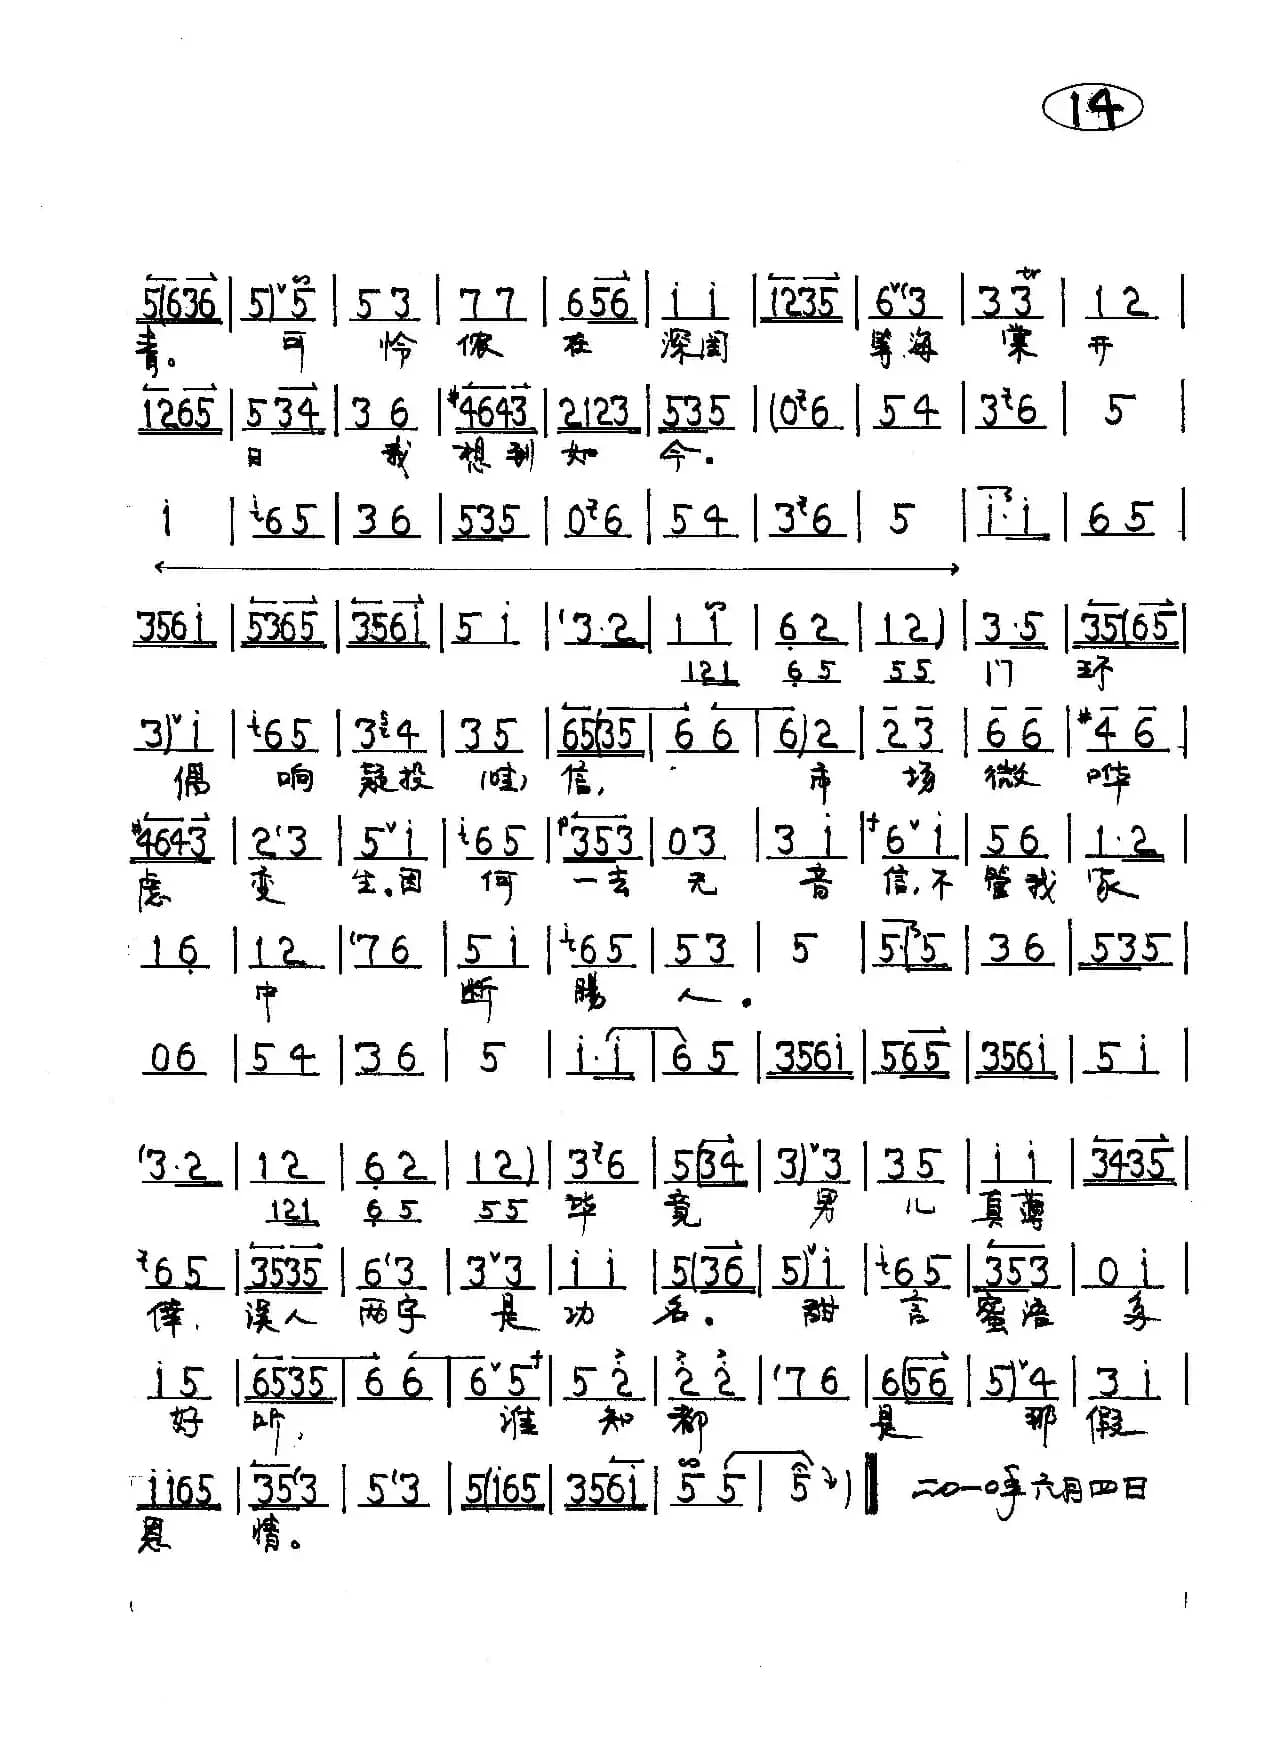 14
5(636 | 5)5 | 53 | 77 | 656 | i i | 1235 | 6 3 | 33 | 12 |
青。 可 怜 侬 在 深闺 等海 棠 开
1265 | 534 | 36 | #4643 | 2123 | 535 | (06 | 54 | 36 | 5 |
日 我 想到 如 今。
i | 65 | 36 | 535 | 06 | 54 | 36 | 5 | i·i | 65 |
356i | 5365 | 356i | 5i | 3·2 | 1 1 | 62 | 12) | 3·5 | 35(65 |
121 65 55 门 环
3)i | 65 | 34 | 35 | 65(35 | 66 | 6)2 | 23 | 66 | #46 |
偶 响 疑投 (哇) 信, 市 场 微 哗
#4643 | 23 | 5i | 65 | 353 | 03 | 3i | 6i | 56 | 1·2 |
虑 变 生。因 何 一去 无 音 信,不 管我 家
16 | 12 | 76 | 5i | 65 | 53 | 5 | 5·(5 | 36 | 535 |
中 断 肠 人。
06 | 54 | 36 | 5 | i·i | 65 | 356i | 565 | 356i | 5i |
3·2 | 12 | 62 | 12) | 36 | 5(34 | 3)3 | 35 | i i | 3435 |
121 65 55 毕 竟 男 儿 真薄
65 | 3535 | 63 | 33 | i i | 5(36 | 5)i | 65 | 353 | 0i |
倖, 误人 两字 是 功 名。 甜 言 蜜语 多
i5 | 6535 | 66 | 65 | 52 | 22 | 76 | 6(56 | 5)4 | 3i |
好 听, 谁 知 都 是 那 假
ii65 | 353 | 53 | 5(i65 | 356i | 5 5 | 5) 二〇一〇年六月四日
恩 情。